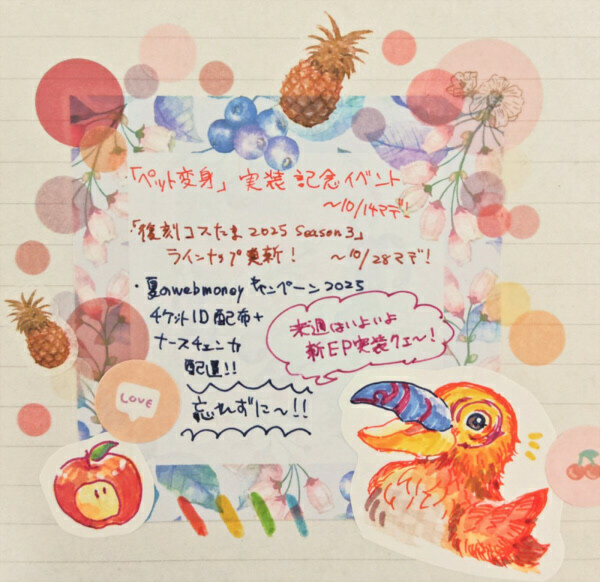 「ペット変身」実装記念イベント
～10/14マデ！
・「復刻コスたま2025 Season3」
ラインナップ更新！ ～10/28マデ！
・夏のwebmoneyキャンペーン2025
チケットID配布+
ナースチェンカ
配送!!
忘れずに～!!
来週はいよいよ
新EP実装クェ～!
LOVE